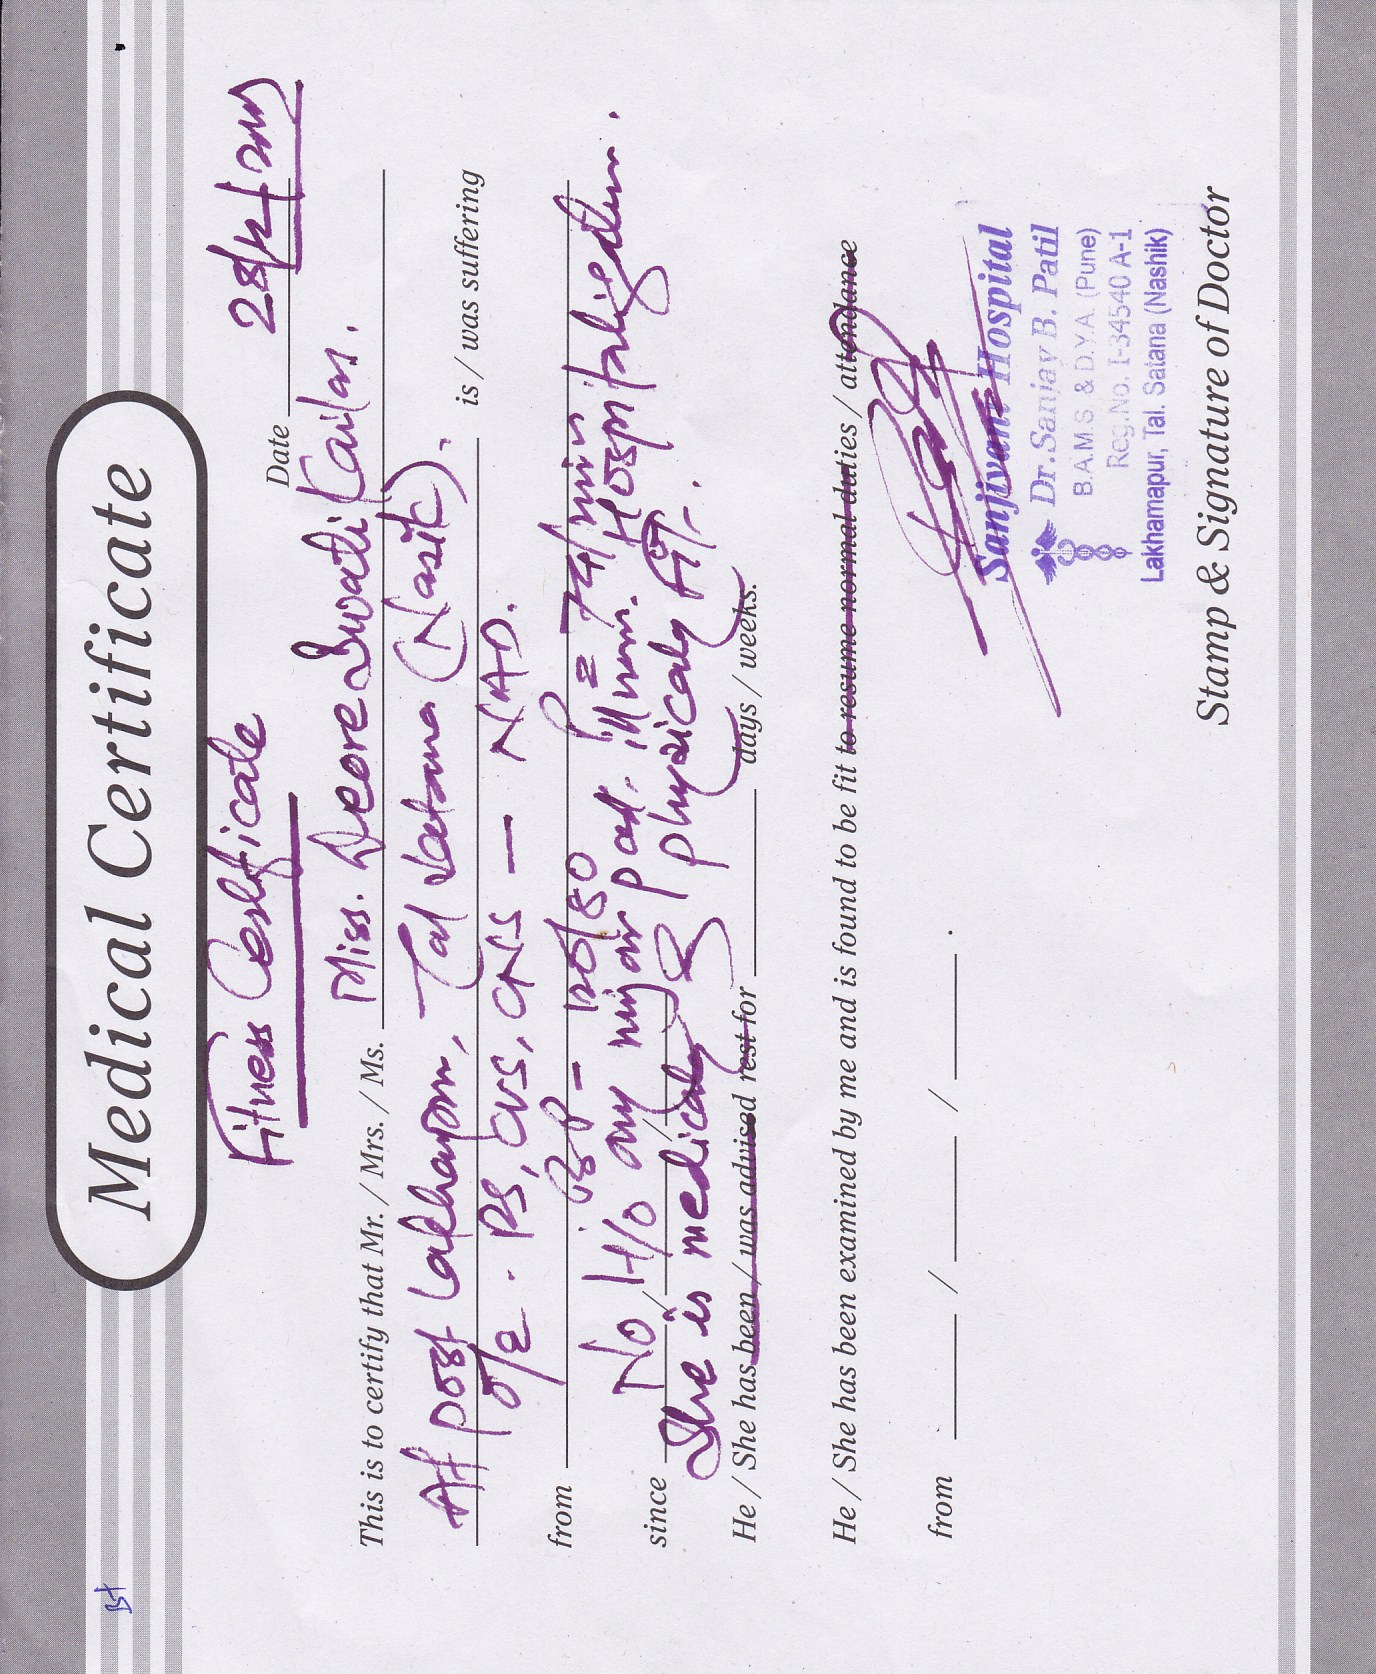 B+
Medical Certificate
Fitness Certificate
Date 28/12/2015
This is to certify that Mr. / Mrs. / Ms. Miss. Deore Swati Kailas.
At post Lakhampur, Tal Satana (Nasik). is / was suffering
O/E. RS, CVS, CNS — NAD.
from B.P - 120/80 P = 74/min
No H/o any major past. illness. Hospitalization.
since / /
She is medically & physically fit.
He / She has been / was advised rest for days / weeks.
He / She has been examined by me and is found to be fit to resume normal duties / attendance
from / / .
Sanjivani Hospital
Dr. Sanjay B. Patil
B.A.M.S. & D.Y.A. (Pune)
Reg.No. I-34540 A-1
Lakhamapur, Tal. Satana (Nashik)
Stamp & Signature of Doctor